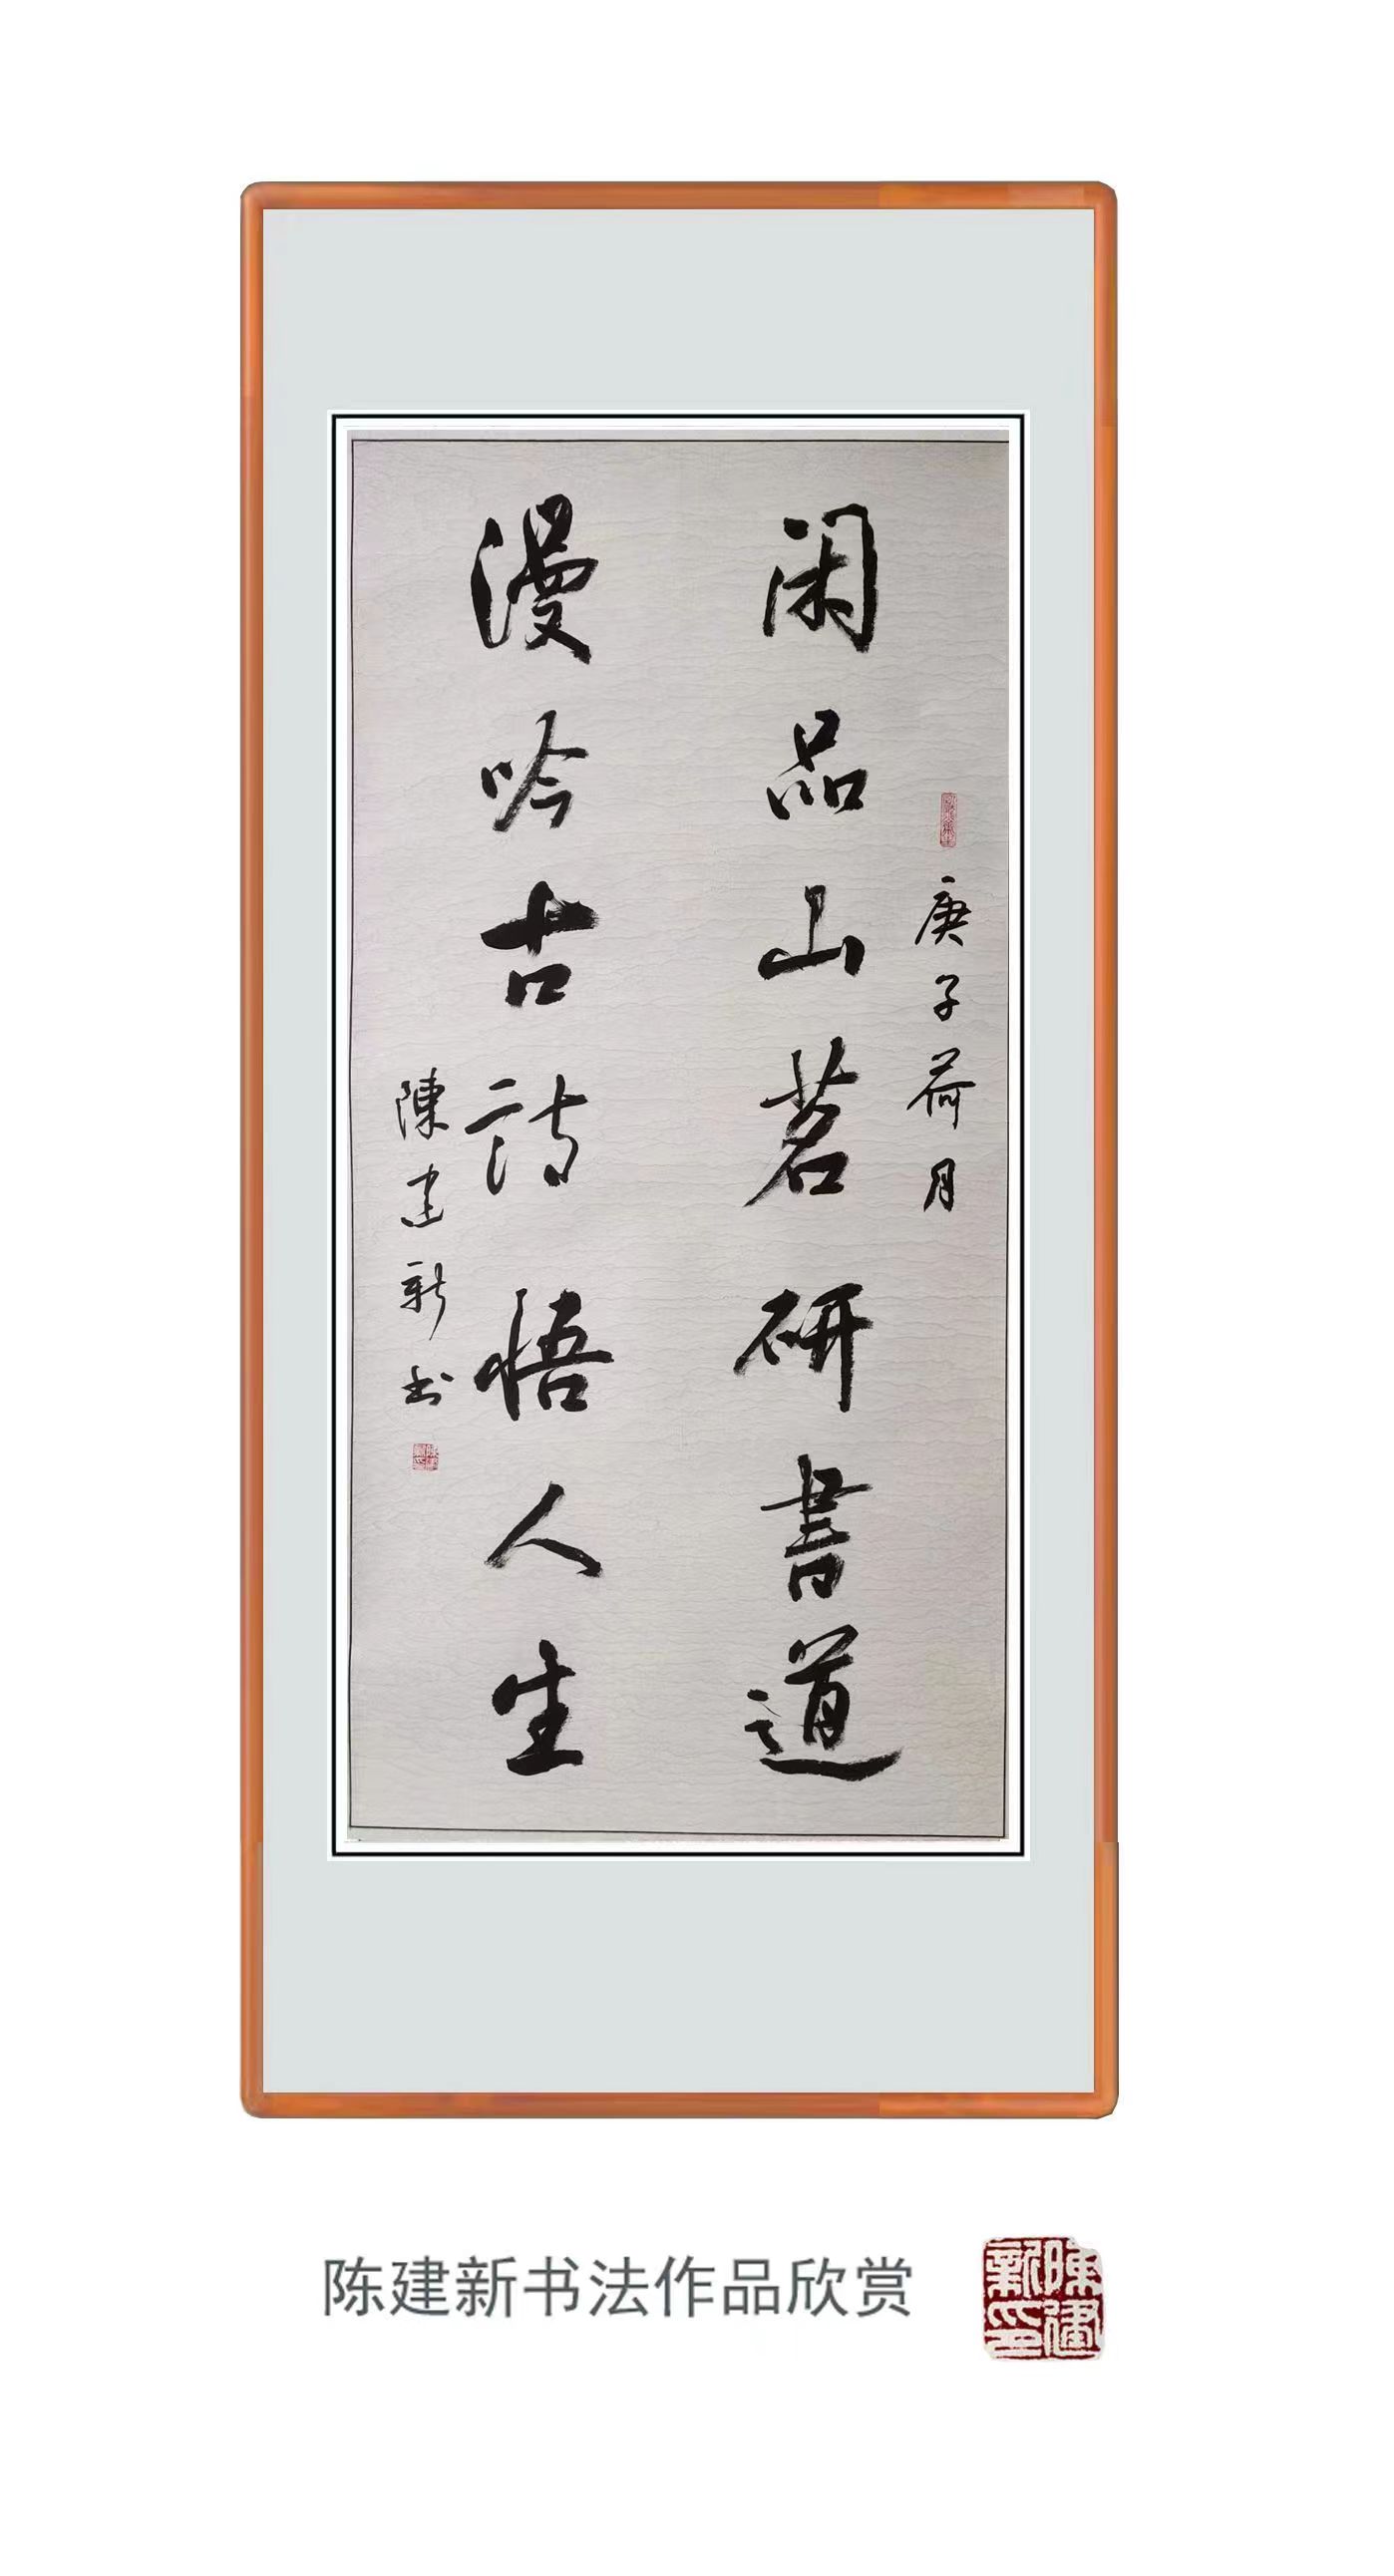 庚子荷月
闲品山茗研書道
漫吟古詩悟人生
陳建新书
陈建新书法作品欣赏
陳建新印